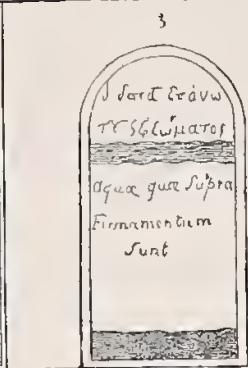 3
ὕδατα ἐπάνω
τȣ ϛερεώματος
aquæ quæ supra
Firmamentum
sunt